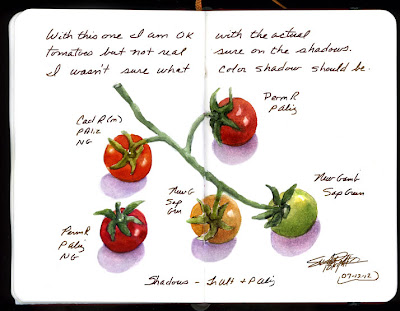 With this one I am OK with the actual
tomatoes but not real sure on the shadows.
I wasn't sure what color shadow should be.
Perm R
P Aliz
Cad R (m)
P Aliz
NG
New G
Sap
Grn
New Gamb
Sap Green
Perm R
P Aliz
NG
Shadows - + P Aliz
07-12-12